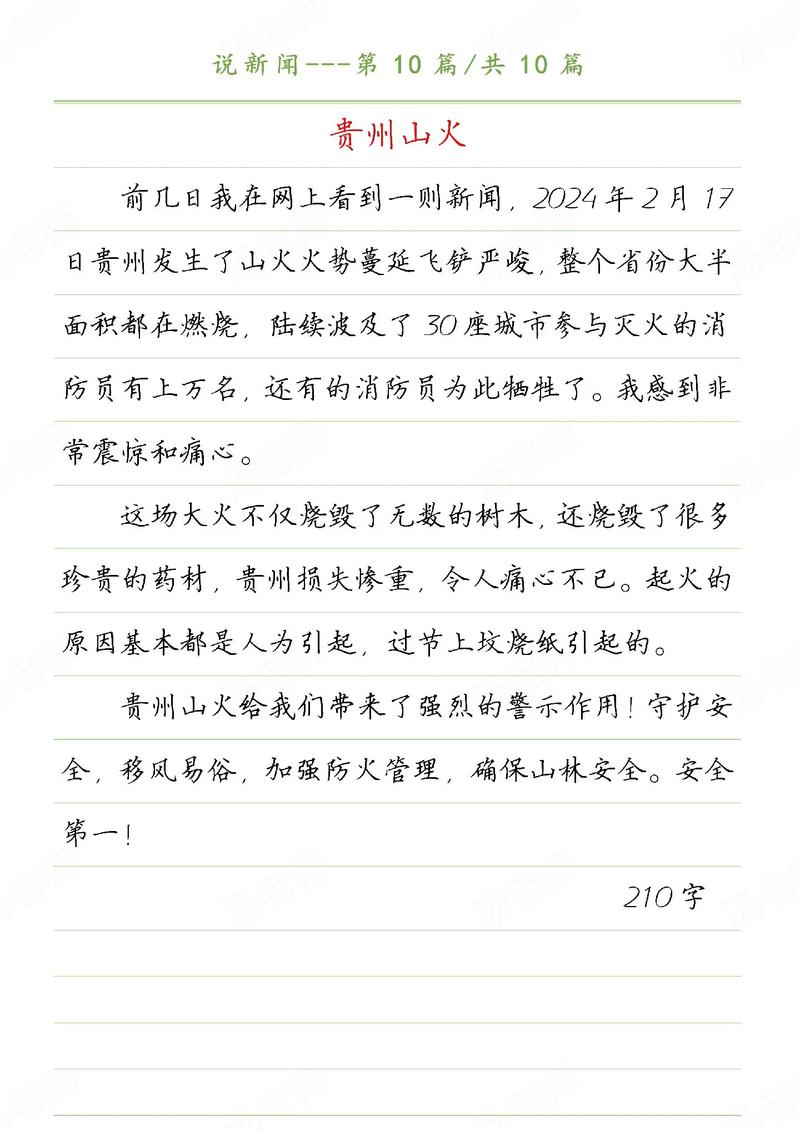 说新闻---第 10 篇/共 10 篇
贵州山火
前几日我在网上看到一则新闻，2024年2月17
日贵州发生了山火火势蔓延飞铲严峻，整个省份大半
面积都在燃烧，陆续波及了30座城市参与灭火的消
防员有上万名，还有的消防员为此牺牲了。我感到非
常震惊和痛心。
这场大火不仅烧毁了无数的树木，还烧毁了很多
珍贵的药材，贵州损失惨重，令人痛心不已。起火的
原因基本都是人为引起，过节上坟烧纸引起的。
贵州山火给我们带来了强烈的警示作用！守护安
全，移风易俗，加强防火管理，确保山林安全。安全
第一！
210字
汤老师